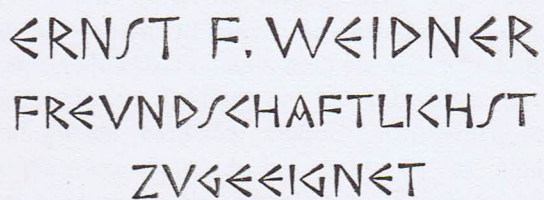 ERNST F. WEIDNER
FREVNDSCHAFTLICHST
ZVGEEIGNET